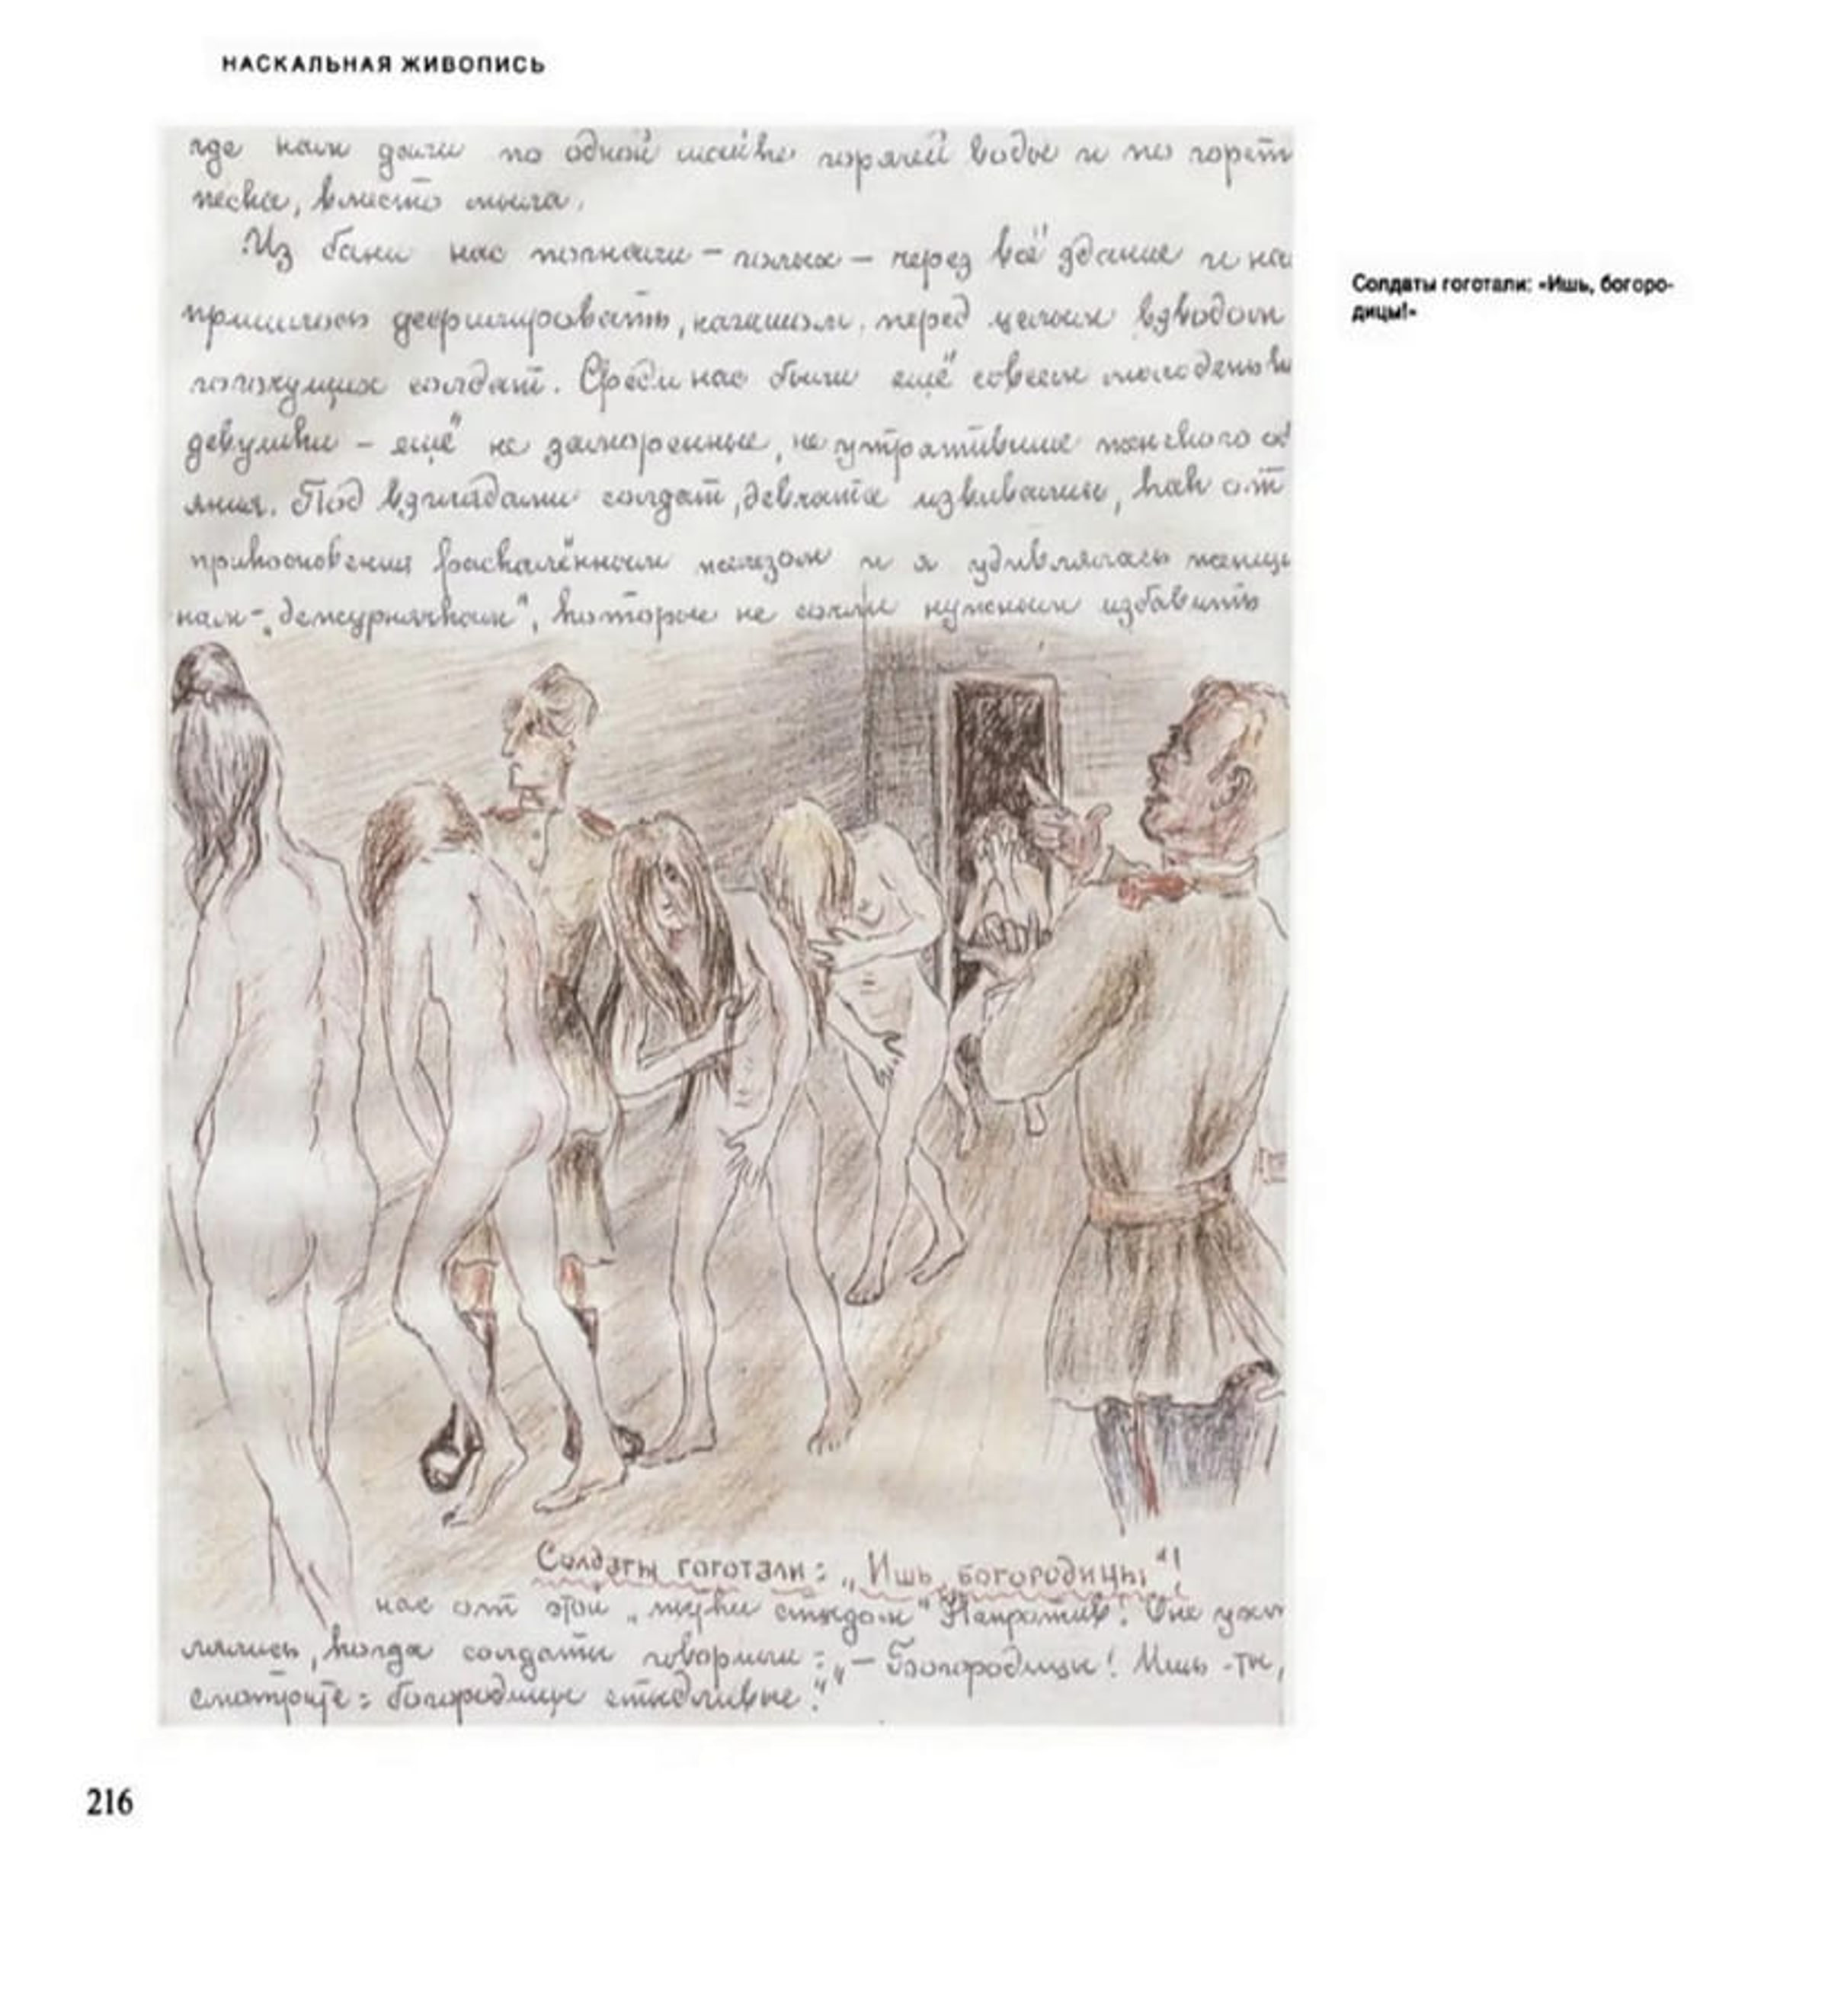 НАСКАЛЬНАЯ ЖИВОПИСЬ
где нам дали по одной шайке горячей воды и по горст
песка, вместо мыла.
Из бани нас погнали – голых – через всё здание и на
пришлось дефилировать, нагишом, перед целым взводом
гогочущих солдат. Среди нас были ещё совсем молоденьки
девушки – ещё не заморенные, не утратившие женского об
яния. Под взглядами солдат, девчата извивались, как от
прикосновения раскалённым железом и я удивлялась женщи
нам-„дежурнячкам", которые не сочли нужным избавить
Солдаты гоготали: „Ишь, богородицы"!
нас от этой „муки стыдом" Напротив! Они ухм
лялись, когда солдаты говорили: „– Богородицы! Ишь-ты,
смотрите: богородицы стыдливые!"
Солдаты гоготали: «Ишь, богоро-
дицы!»
216